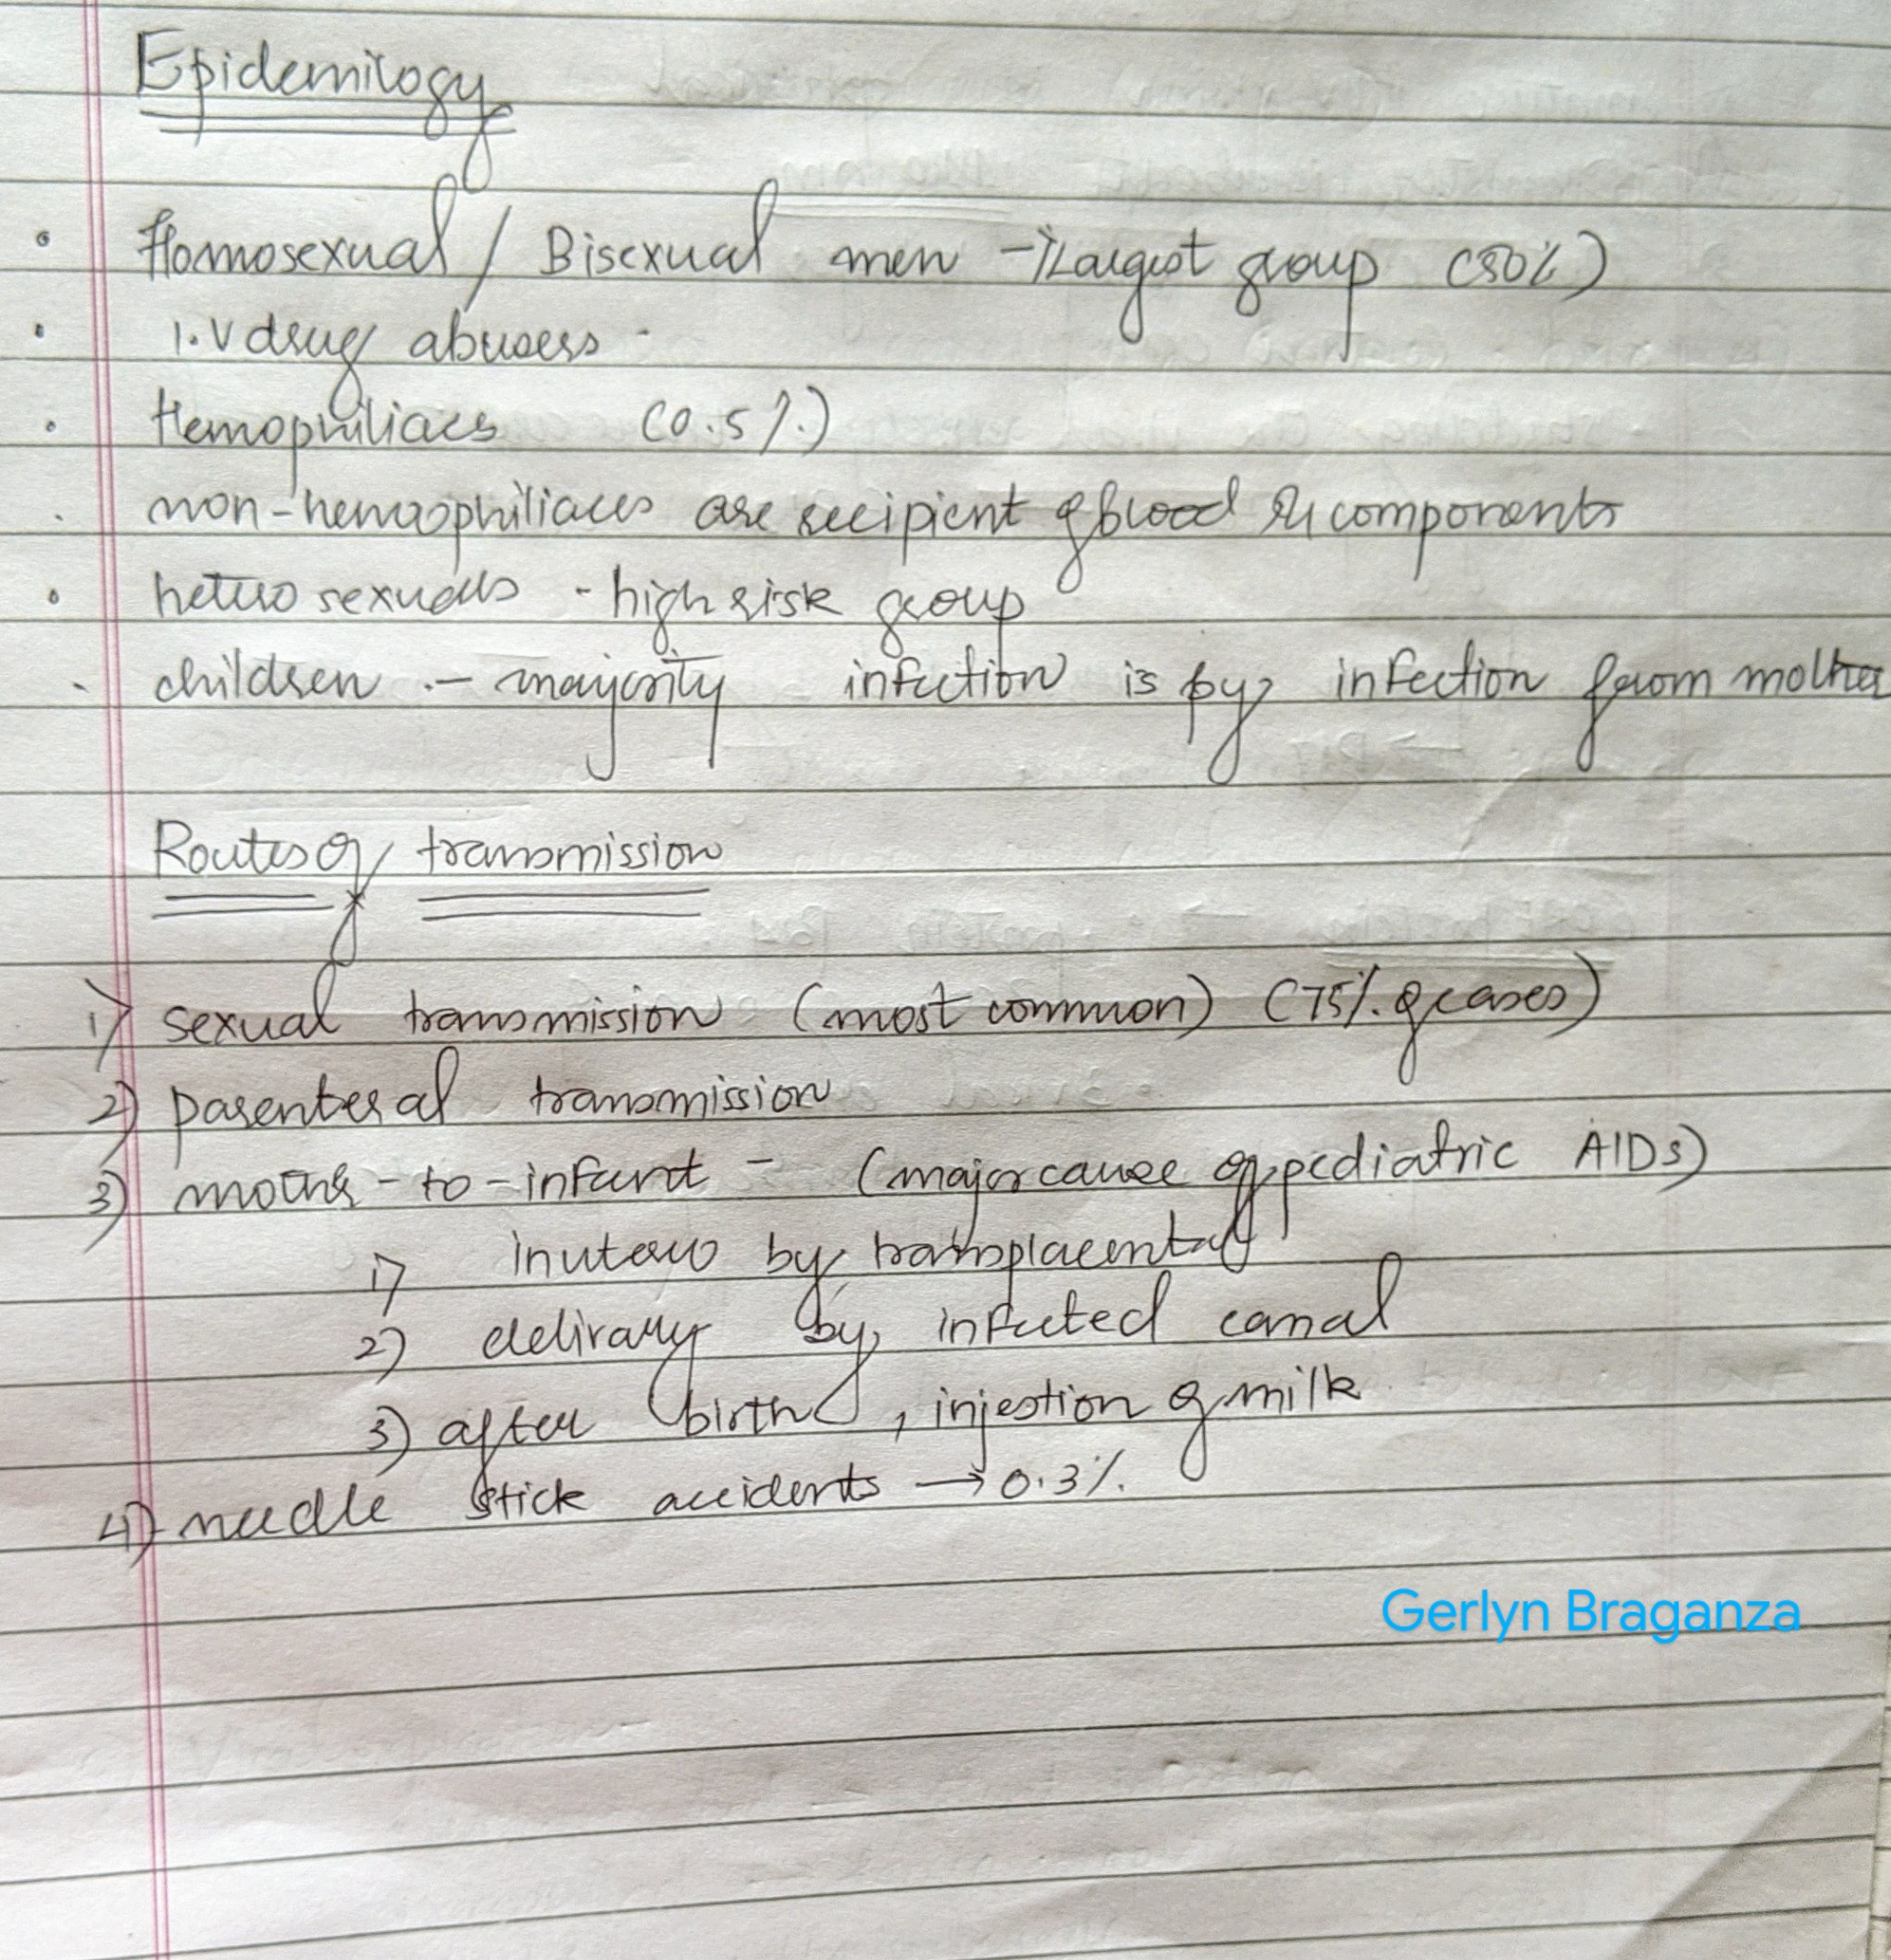 Epidemilogy
• Homosexual / Bisexual men → Largest group (50%)
• I.V drug abusers
• Hemophiliacs (0.5%)
• non-hemophiliacs are recipient of blood & components
• hetero sexuals - high risk group
• children - majority infection is by infection from mother
Routes of transmission
1) sexual transmission (most common) (75% of cases)
2) parenteral transmission
3) mother-to-infant - (major cause of pediatric AIDs)
1) inutero by transplacental
2) delivary by infected canal
3) after birth, injestion of milk
4) needle stick accidents → 0.3%
Gerlyn Braganza